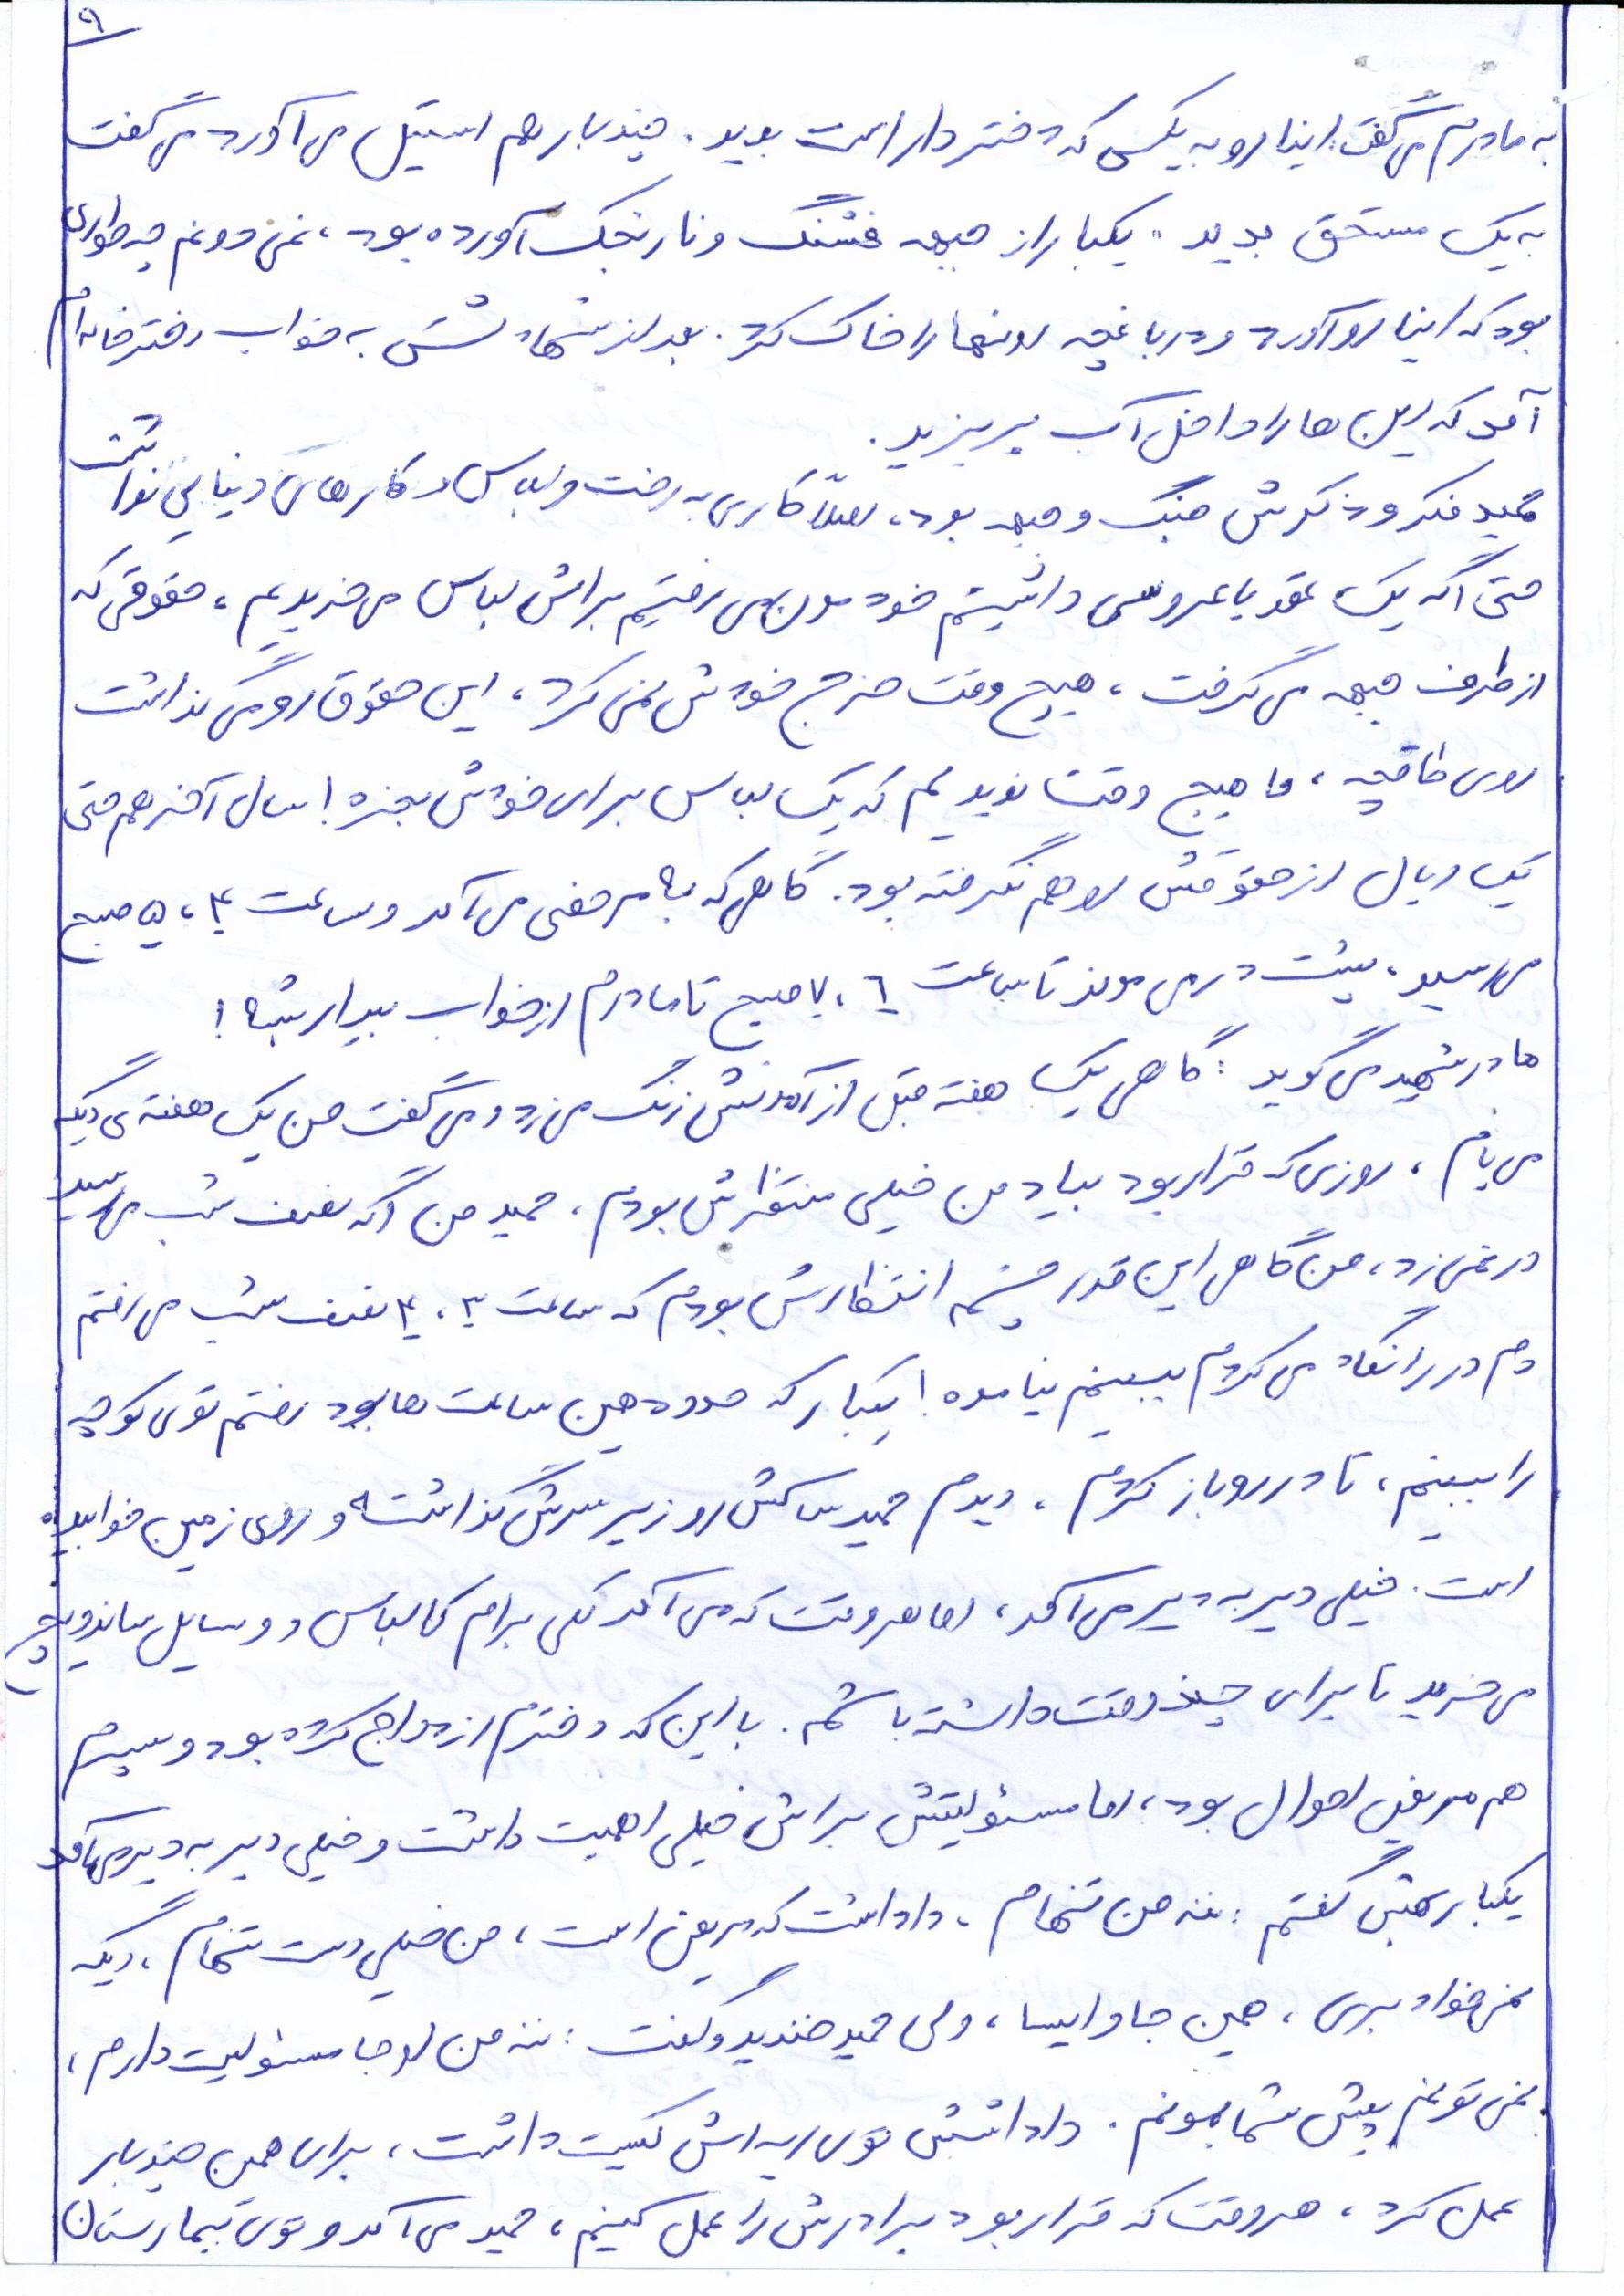 ۹
به مادرم می‌گفت: اینا رو به یکسی که دختر دار است بدید. چند بار هم استیل می‌آورد می‌گفت
به یک مستحق بدید. یکبار از جبهه فشنگ و نارنجک آورده بود، نمی‌دونم چه طوری
بود که اینا رو آورد و در باغچه اونها را خاک کرد. بعد از شهادتش به خواب دخترخاله‌ام
آمد که این ها را داخل آب بریزید.
حمید فکر و ذکرش جنگ و جبهه بود، اصلاً کاری به رخت و لباس و کارهای دنیایی نداشت
حتی اگه یک عقد یا عروسی داشتیم خودمون می‌رفتیم براش لباس می‌خریدیم، حقوقی که
از طرف جبهه می‌گرفت، هیچ وقت خرج خودش نمی‌کرد، این حقوق رو می‌گذاشت
روی طاقچه، ما هیچ وقت ندیدیم که یک لباس برای خودش بخره! سال آخر هم حتی
یک ریال از حقوقش رو هم نگرفته بود. گاهی که به مرخصی می‌آمد و ساعت ۴، ۵ صبح
می‌رسید، پشت در می‌موند تا ساعت ۶، ۷ صبح تا مادرم از خواب بیدار بشه!
مادر شهید می‌گوید: گاهی یک هفته قبل از آمدنش زنگ می‌زد و می‌گفت من یک هفته‌ی دیگه
می‌یام، روزی که قرار بود بیاد من خیلی منتظرش بودم، حمید من اگه نصف شب می‌رسید
در نمی‌زد، من گاهی این قدر چشم انتظارش بودم که ساعت ۳، ۴ نصف شب می‌رفتم
دم در را نگاه می‌کردم ببینم نیامده! یکبار که حدود همین ساعت ها بود رفتم توی کوچه
را ببینم، تا در رو باز کردم، دیدم حمید ساکش رو زیر سرش گذاشته و روی زمین خوابیده
است. خیلی دیر به دیر می‌آمد، اما هر وقت که می‌آمد کلی برام کالباس و وسایل ساندویچ
می‌خرید تا برای چند وقت داشته باشم. با این که دخترم ازدواج کرده بود و پسرم
هم مریض احوال بود، اما مسئولیتش براش خیلی اهمیت داشت و خیلی دیر به دیر می‌آمد
یکبار بهش گفتم: ننه من تنهام، داداشت که مریض است، من خیلی دست تنهام، دیگه
نمی‌خواد بری، همین جا وایسا، ولی حمید خندید و گفت: ننه من اونجا مسئولیت دارم،
نمی‌تونم پیش شما بمونم. داداشش توی ریه‌اش کیست داشت، برای همین چند بار
عمل کرد، هر وقت که قرار بود برادرش را عمل کنیم، حمید می‌آمد و توی بیمارستان